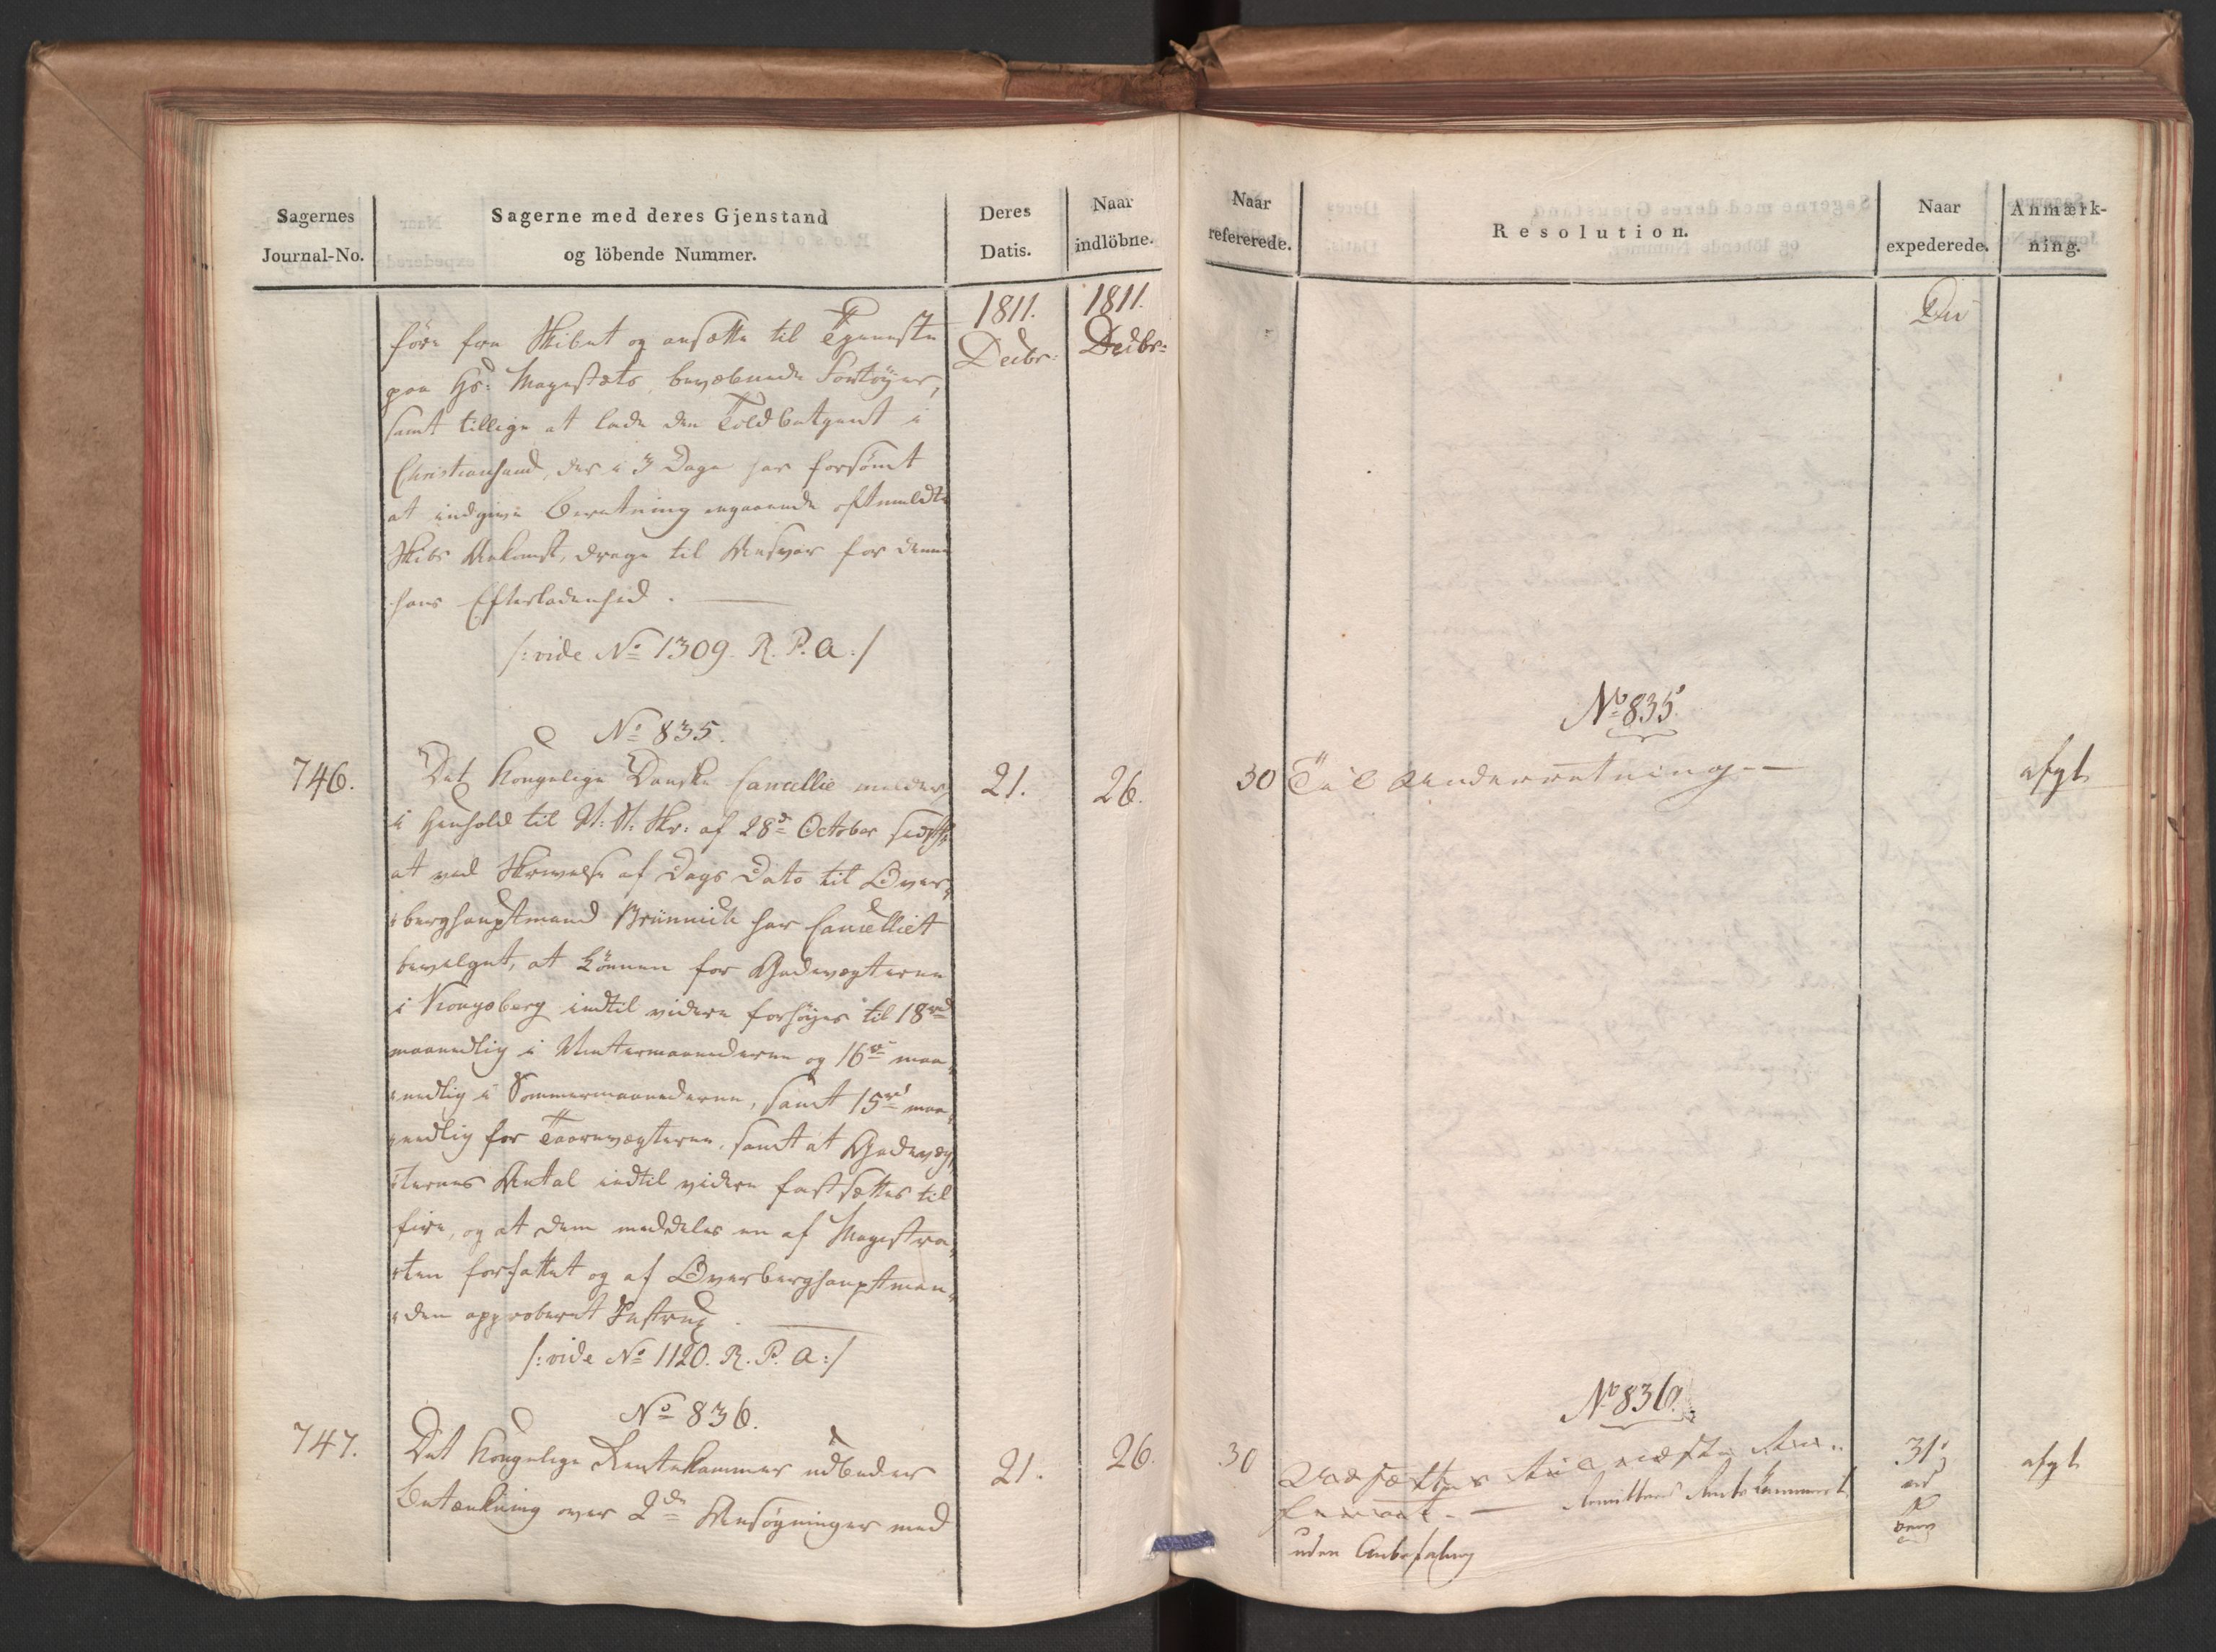 Sagernes
Journal-No.
Sagerne med deres Gjenstand
og löbende Nummer.
Deres
Datis.
Naar
indlöbne.
1811.
Decbr:
1811.
Decbr:
före fra Skibet og ansætte til Tjeneste
paa Hs: Majestæts bevæbnede Fartöyer,
samt tillige at lade den Toldbetjent i
Christiansand, der i 3 Dage har forsömt
at indgive Beretning angaaende oftmeldte
Skibs Ankomst, drage til Ansvar for denne
hans Efterladenhed.
/: vide No 1309. R. P. A:/
No 835.
746.
Det Kongelige Danske Cancellie melder
i Henhold til R: St: Skr: af 28d October sidstl:
at ved Skrivelse af Dags Dato til Over-
berghauptmand Brünnich har Cancelliet
bevilget, at Lönnen for Gadevægterne
i Kongsberg indtil videre forhöyes til 18rd
maanedlig i Vintermaanederne og 16rd maa-
nedlig i Sommermaanederne, samt 15rd maa-
nedlig for Taarnvægterne, samt at Gadevæg-
ternes Antal indtil videre fastsættes til
fire, og at dem meddeles en af Magistra-
ten forfattet og af Overberghauptman-
den approberet Instrux.
/: vide No 1120. R. P. A:/
21.
26.
No 836.
747.
Det Kongelige Rentekammer udbeder
Betænkning over 2de Ansögninger med
21.
26.
Naar
refererede.
Resolution.
Naar
expederede.
Anmærk-
ning.
No 835.
30
Til Underretning.
afgl
No 836.
30
Udsættes til næste
uden Anbefaling
31
afgl